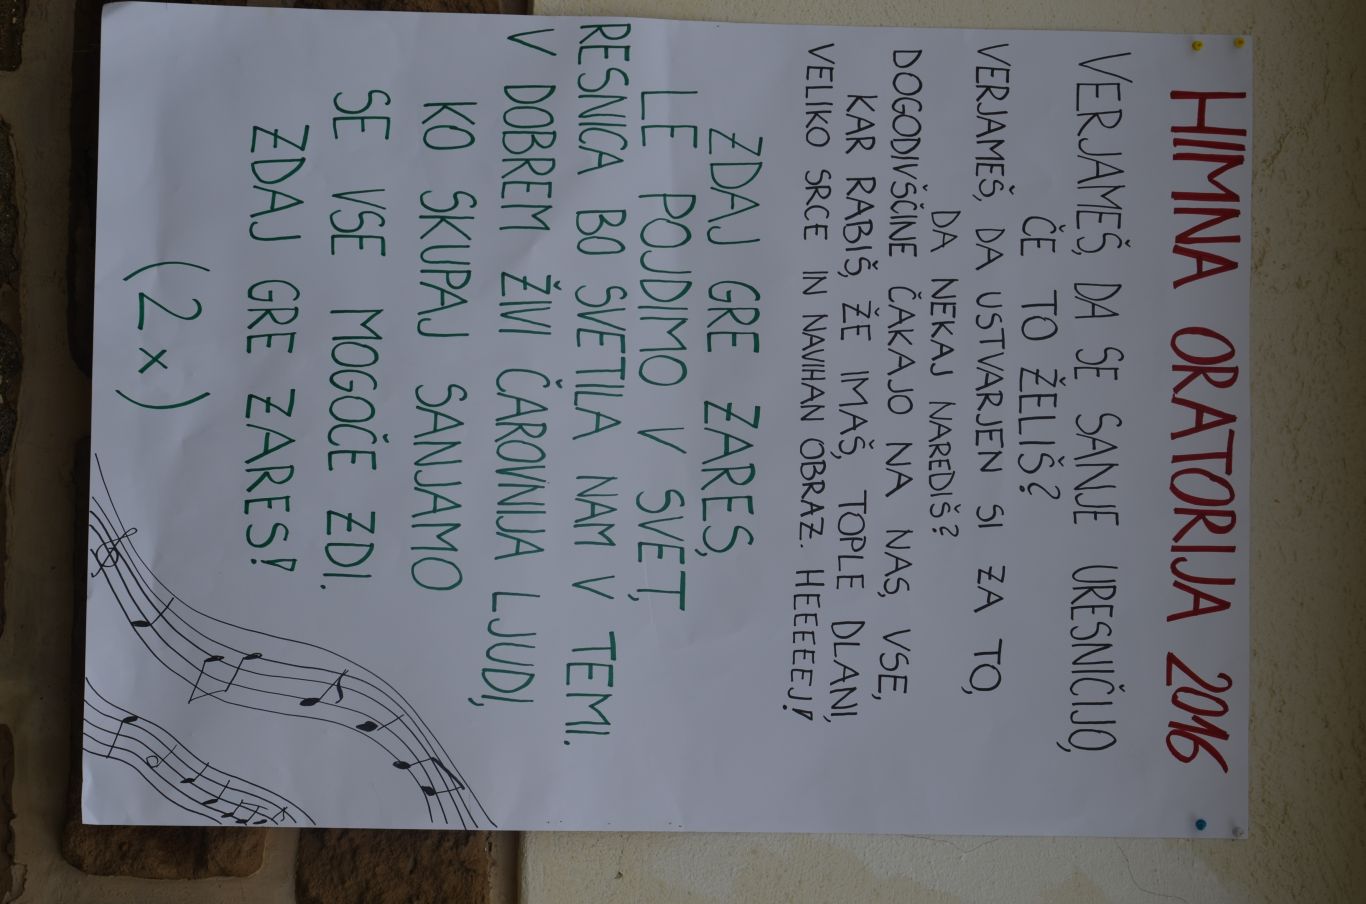 HIMNA ORATORIJA 2016
VERJAMEŠ, DA SE SANJE URESNIČIJO,
ČE TO ŽELIŠ?
VERJAMEŠ, DA USTVARJEN SI ZA TO,
DA NEKAJ NAREDIŠ?
DOGODIVŠČINE ČAKAJO NA NAS, VSE,
KAR RABIŠ, ŽE IMAŠ, TOPLE DLANI,
VELIKO SRCE IN NAVIHAN OBRAZ. HEEEEEJ!
ZDAJ GRE ZARES,
LE POJDIMO V SVET,
RESNICA BO SVETILA NAM V TEMI.
V DOBREM ŽIVI ČAROVNIJA LJUDI,
KO SKUPAJ SANJAMO
SE VSE MOGOČE ZDI.
ZDAJ GRE ZARES!
(2x)